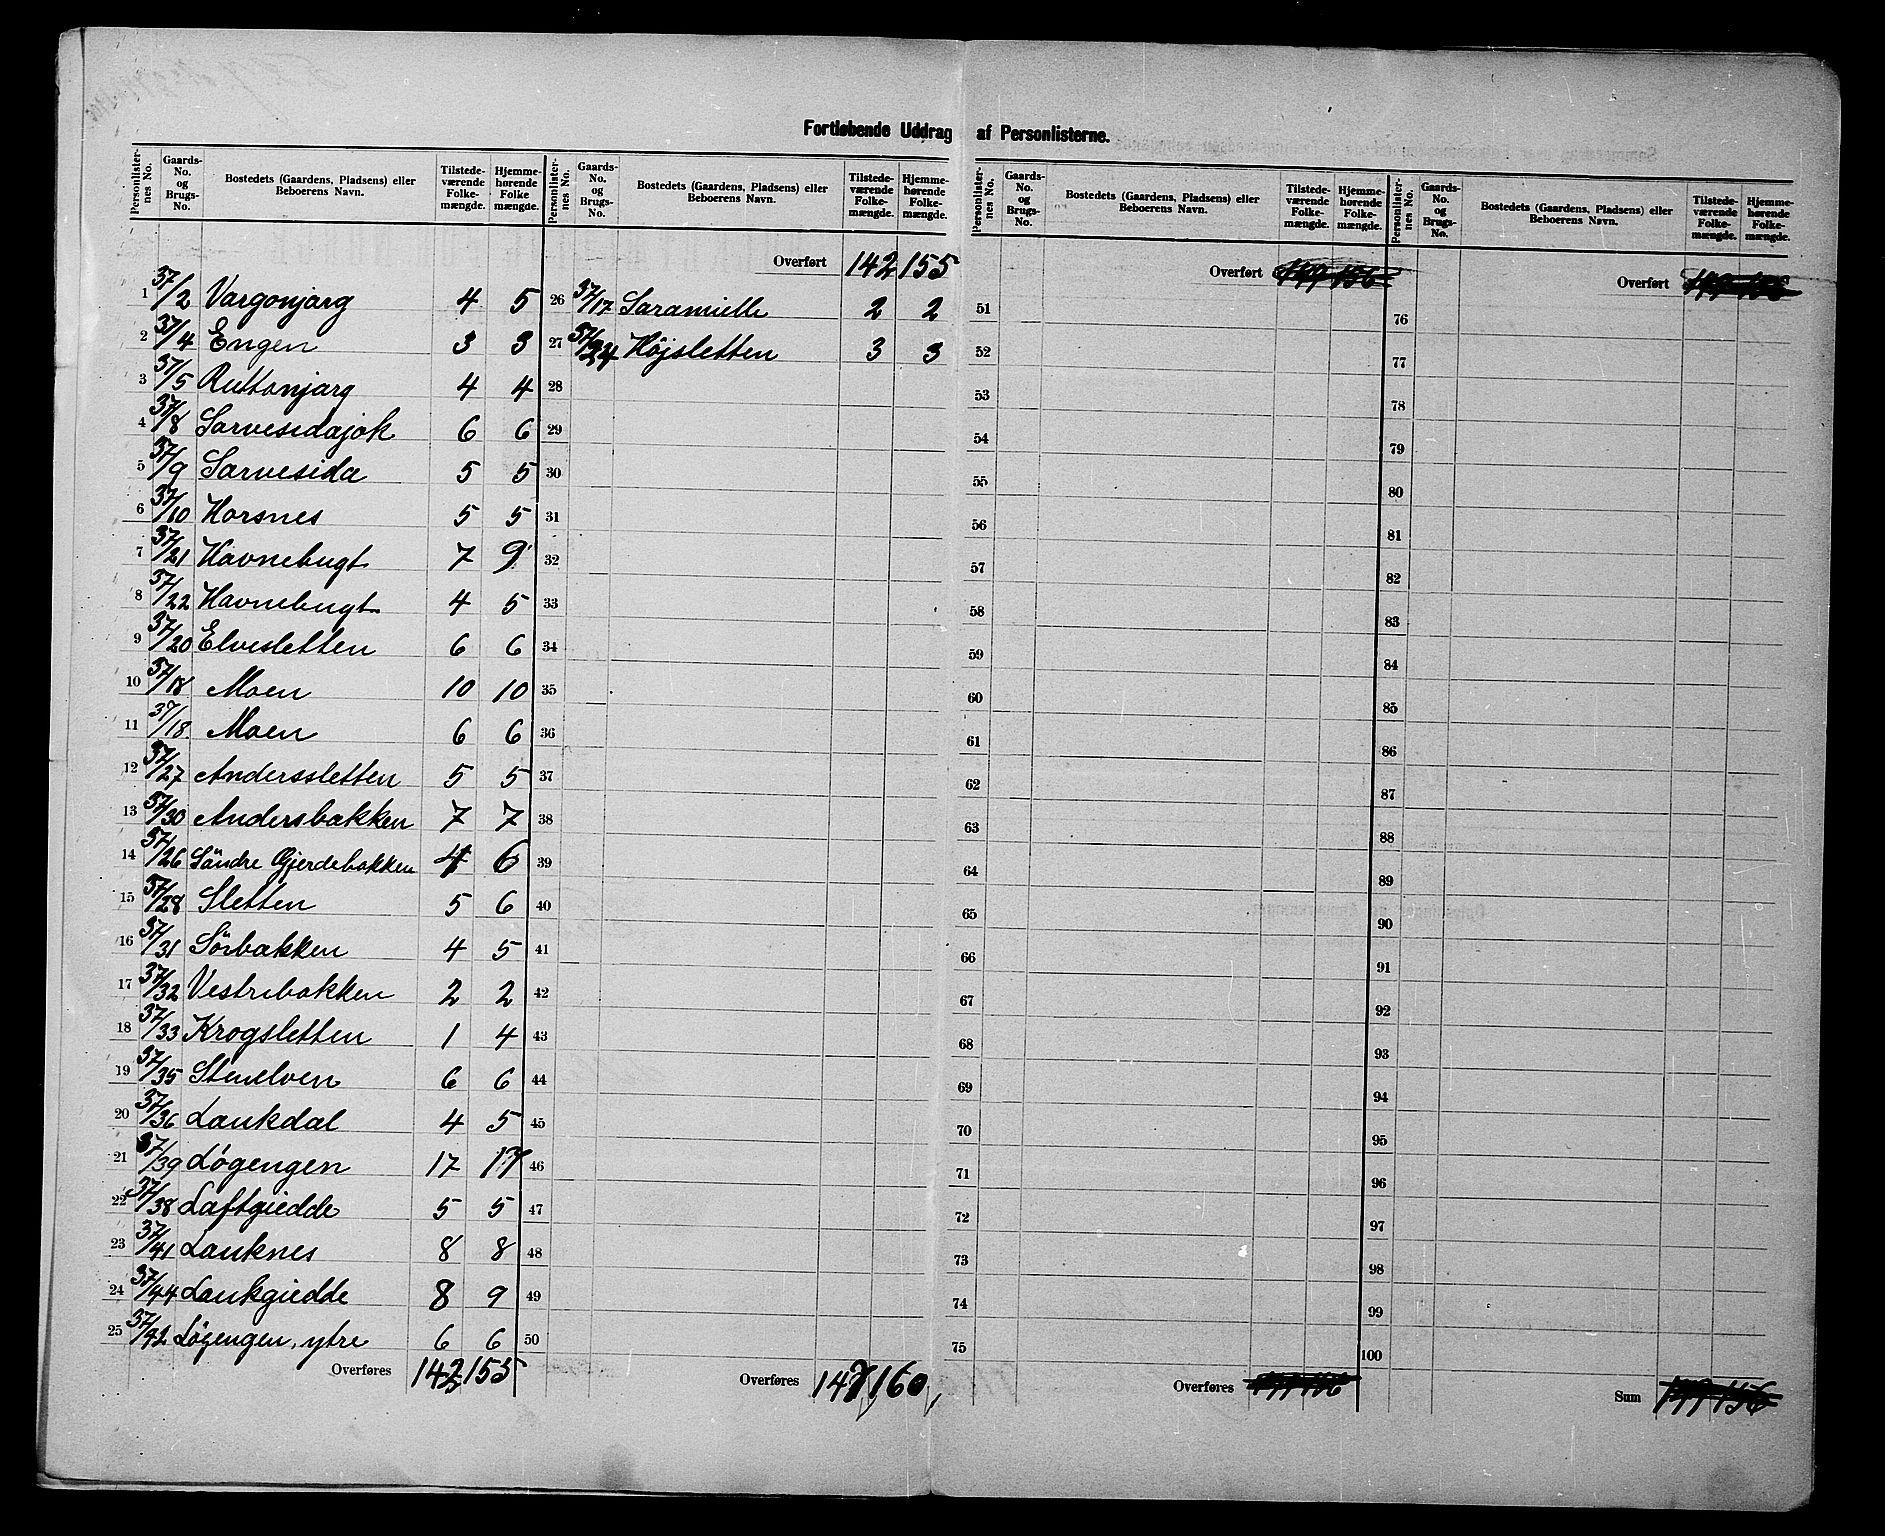 Fortløbende Uddrag af Personlisterne.
Personlister-nes No. Gaards-No. og Brugs-No. Bostedets (Gaardens, Pladsens) eller Beboerens Navn. Tilstede-værende Folke-mængde. Hjemme-hørende Folke mængde.
1 37/2 Vargonjarg 4 5
2 37/4 Engen 3 3
3 37/5 Ruttonjarg 4 4
4 37/8 Sarvesidajok 6 6
5 37/9 Sarvesida 5 5
6 37/10 Horsnes 5 5
7 37/21 Havnebugt 7 9
8 37/22 Havnebugt 4 5
9 37/20 Elvesletten 6 6
10 37/18 Moen 10 10
11 37/18 Moen 6 6
12 37/27 Anderssletten 5 5
13 37/30 Andersbakken 7 7
14 37/26 Söndre Gjerdebakken 4 6
15 37/28 Sletten 5 6
16 37/31 Sörbakken 4 5
17 37/32 Vestrebakken 2 2
18 37/33 Krogsletten 1 4
19 37/35 Stenelven 6 6
20 37/36 Laukdal 4 5
21 37/39 Løgengen 17 17
22 37/38 Laftgiedde 5 5
23 37/41 Lauknes 8 8
24 37/44 Laukgiedde 8 9
25 37/42 Løgengen, ytre 6 6
Overføres 142 155
Personlister-nes No. Gaards-No. og Brugs-No. Bostedets (Gaardens, Pladsens) eller Beboerens Navn. Tilstede-værende Folke-mængde. Hjemme-hørende Folke-mængde.
Overført 142 155
26 37/17 Saramielle 2 2
27 37/24 Højsletten 3 3
28
29
30
31
32
33
34
35
36
37
38
39
40
41
42
43
44
45
46
47
48
49
50
Overføres 147 160
Personlister-nes No. Gaards-No. og Brugs-No. Bostedets (Gaardens, Pladsens) eller Beboerens Navn. Tilstede-værende Folke-mængde. Hjemme-hørende Folke-mængde.
Overført
51
52
53
54
55
56
57
58
59
60
61
62
63
64
65
66
67
68
69
70
71
72
73
74
75
Overføres
Personlister-nes No. Gaards-No. og Brugs-No. Bostedets (Gaardens, Pladsens) eller Beboerens Navn. Tilstede-værende Folke-mængde. Hjemme-hørende Folke-mængde.
Overført
76
77
78
79
80
81
82
83
84
85
86
87
88
89
90
91
92
93
94
95
96
97
98
99
100
Sum